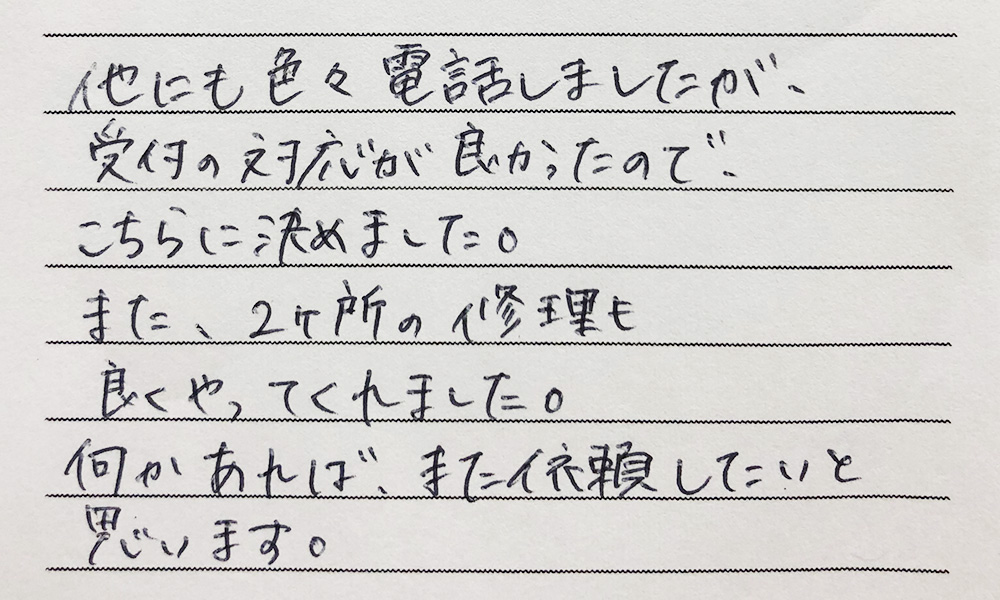 他にも色々電話しましたが、
受付の対応が良かったので、
こちらに決めました。
また、2ヶ所の修理も
良くやってくれました。
何かあれば、また依頼したいと
思います。